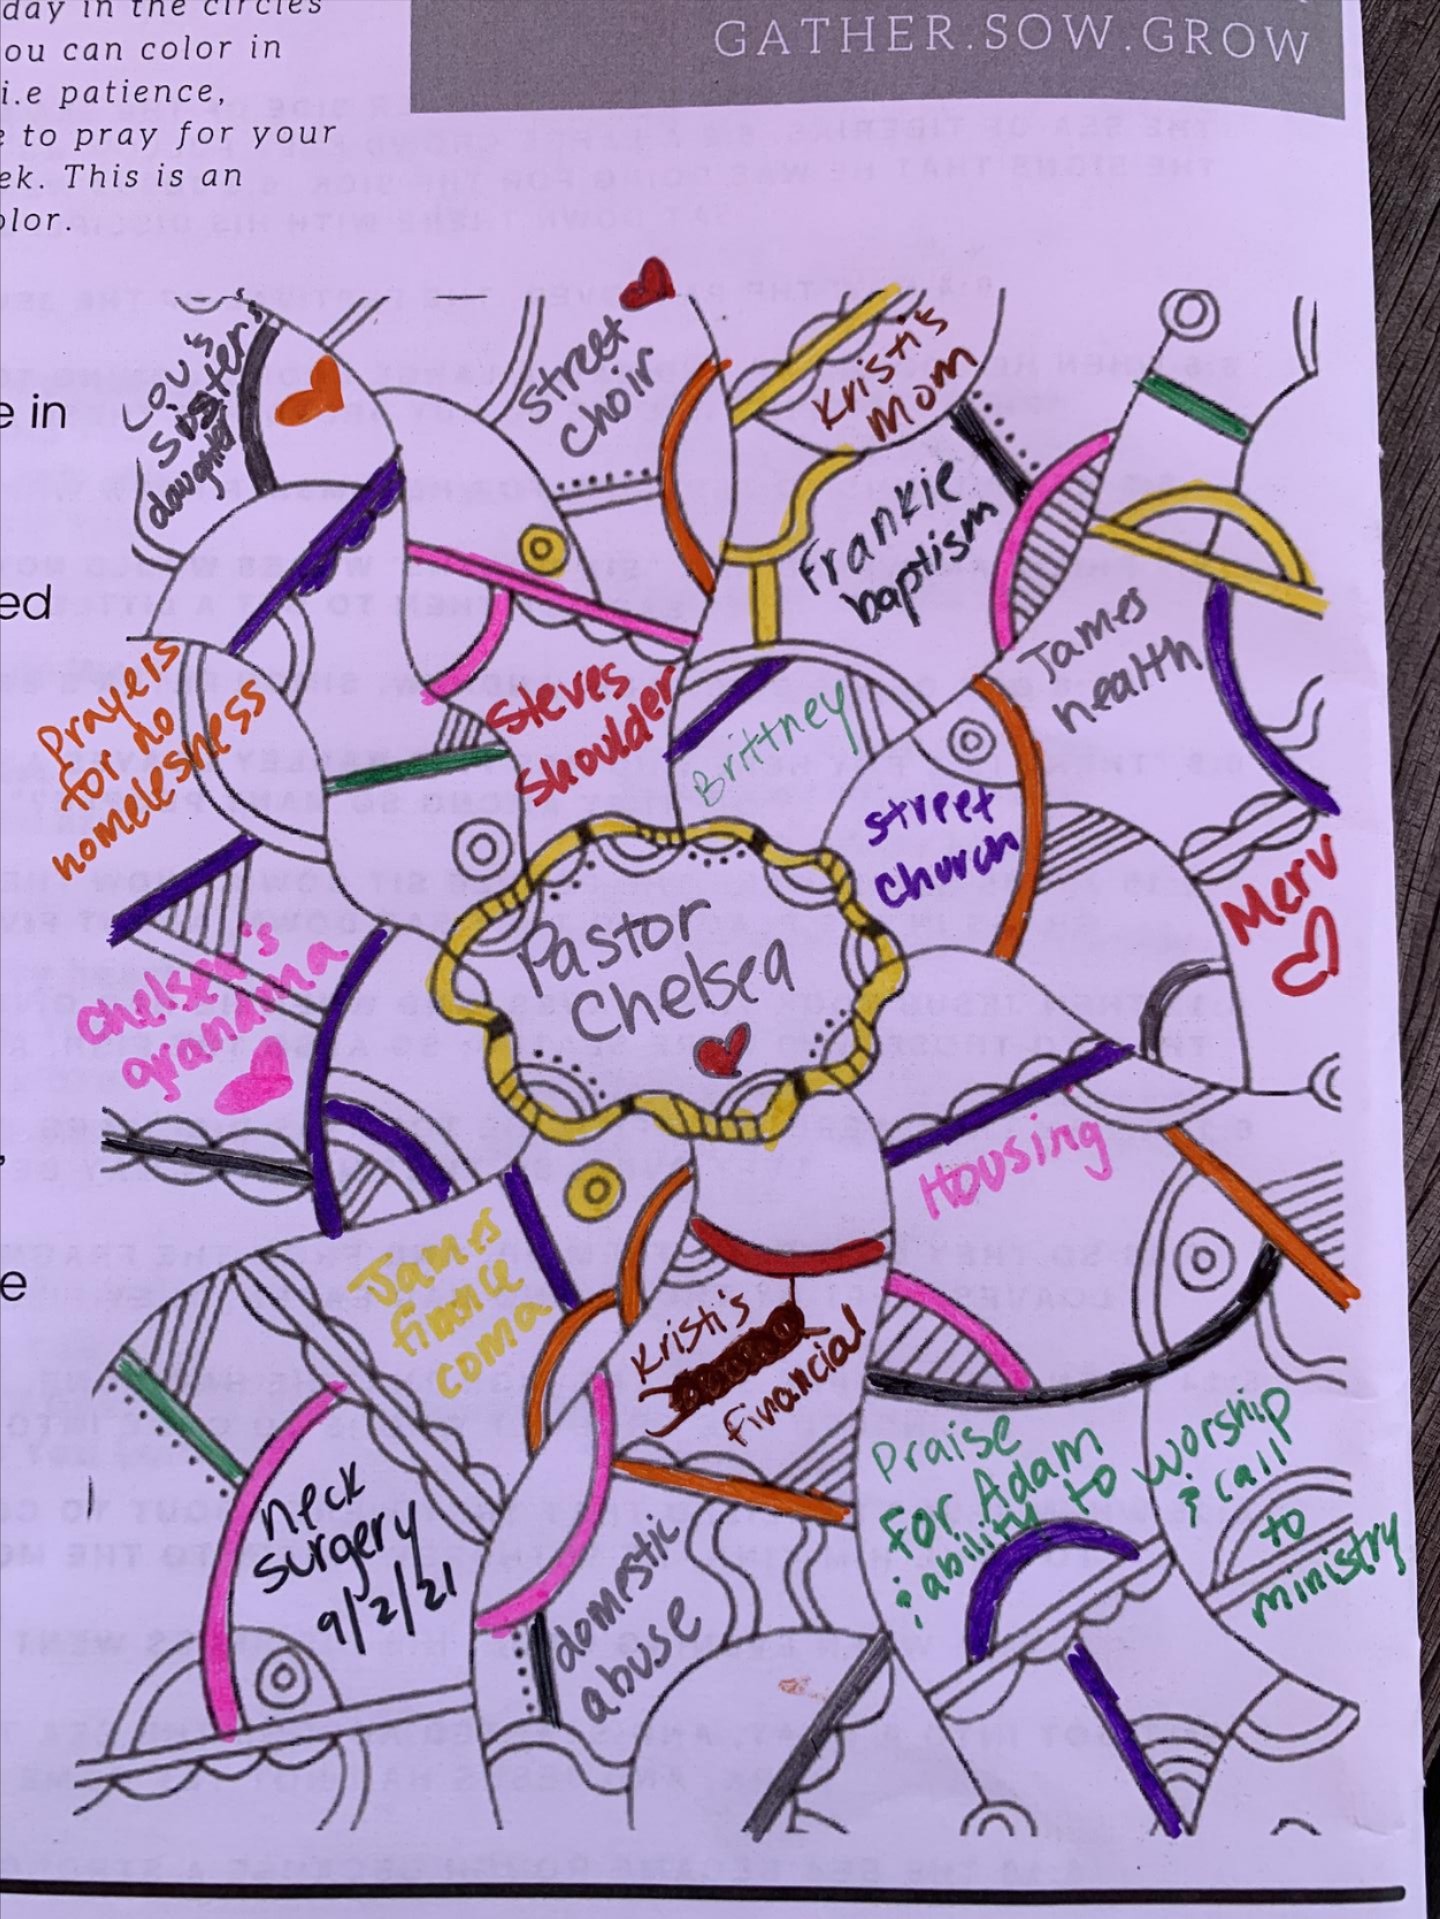 day in the circles
ou can color in
i.e patience,
e to pray for your
ek. This is an
olor.
GATHER.SOW.GROW
e in
ed
e
Lou's
sister's
daughter
street
choir
Kristi's
Mom
Frankie
baptism
James
health
Prayers
for
no
homelesness
Steves
Shoulder
Brittney
street
church
Merv
Chelsea's
grandma
Pastor
Chelsea
Housing
James
finance
coma
Kristi's
financial
neck
surgery
9/2/21
domestic
abuse
Praise
for Adam
& ability to
worship
& call
to
ministry